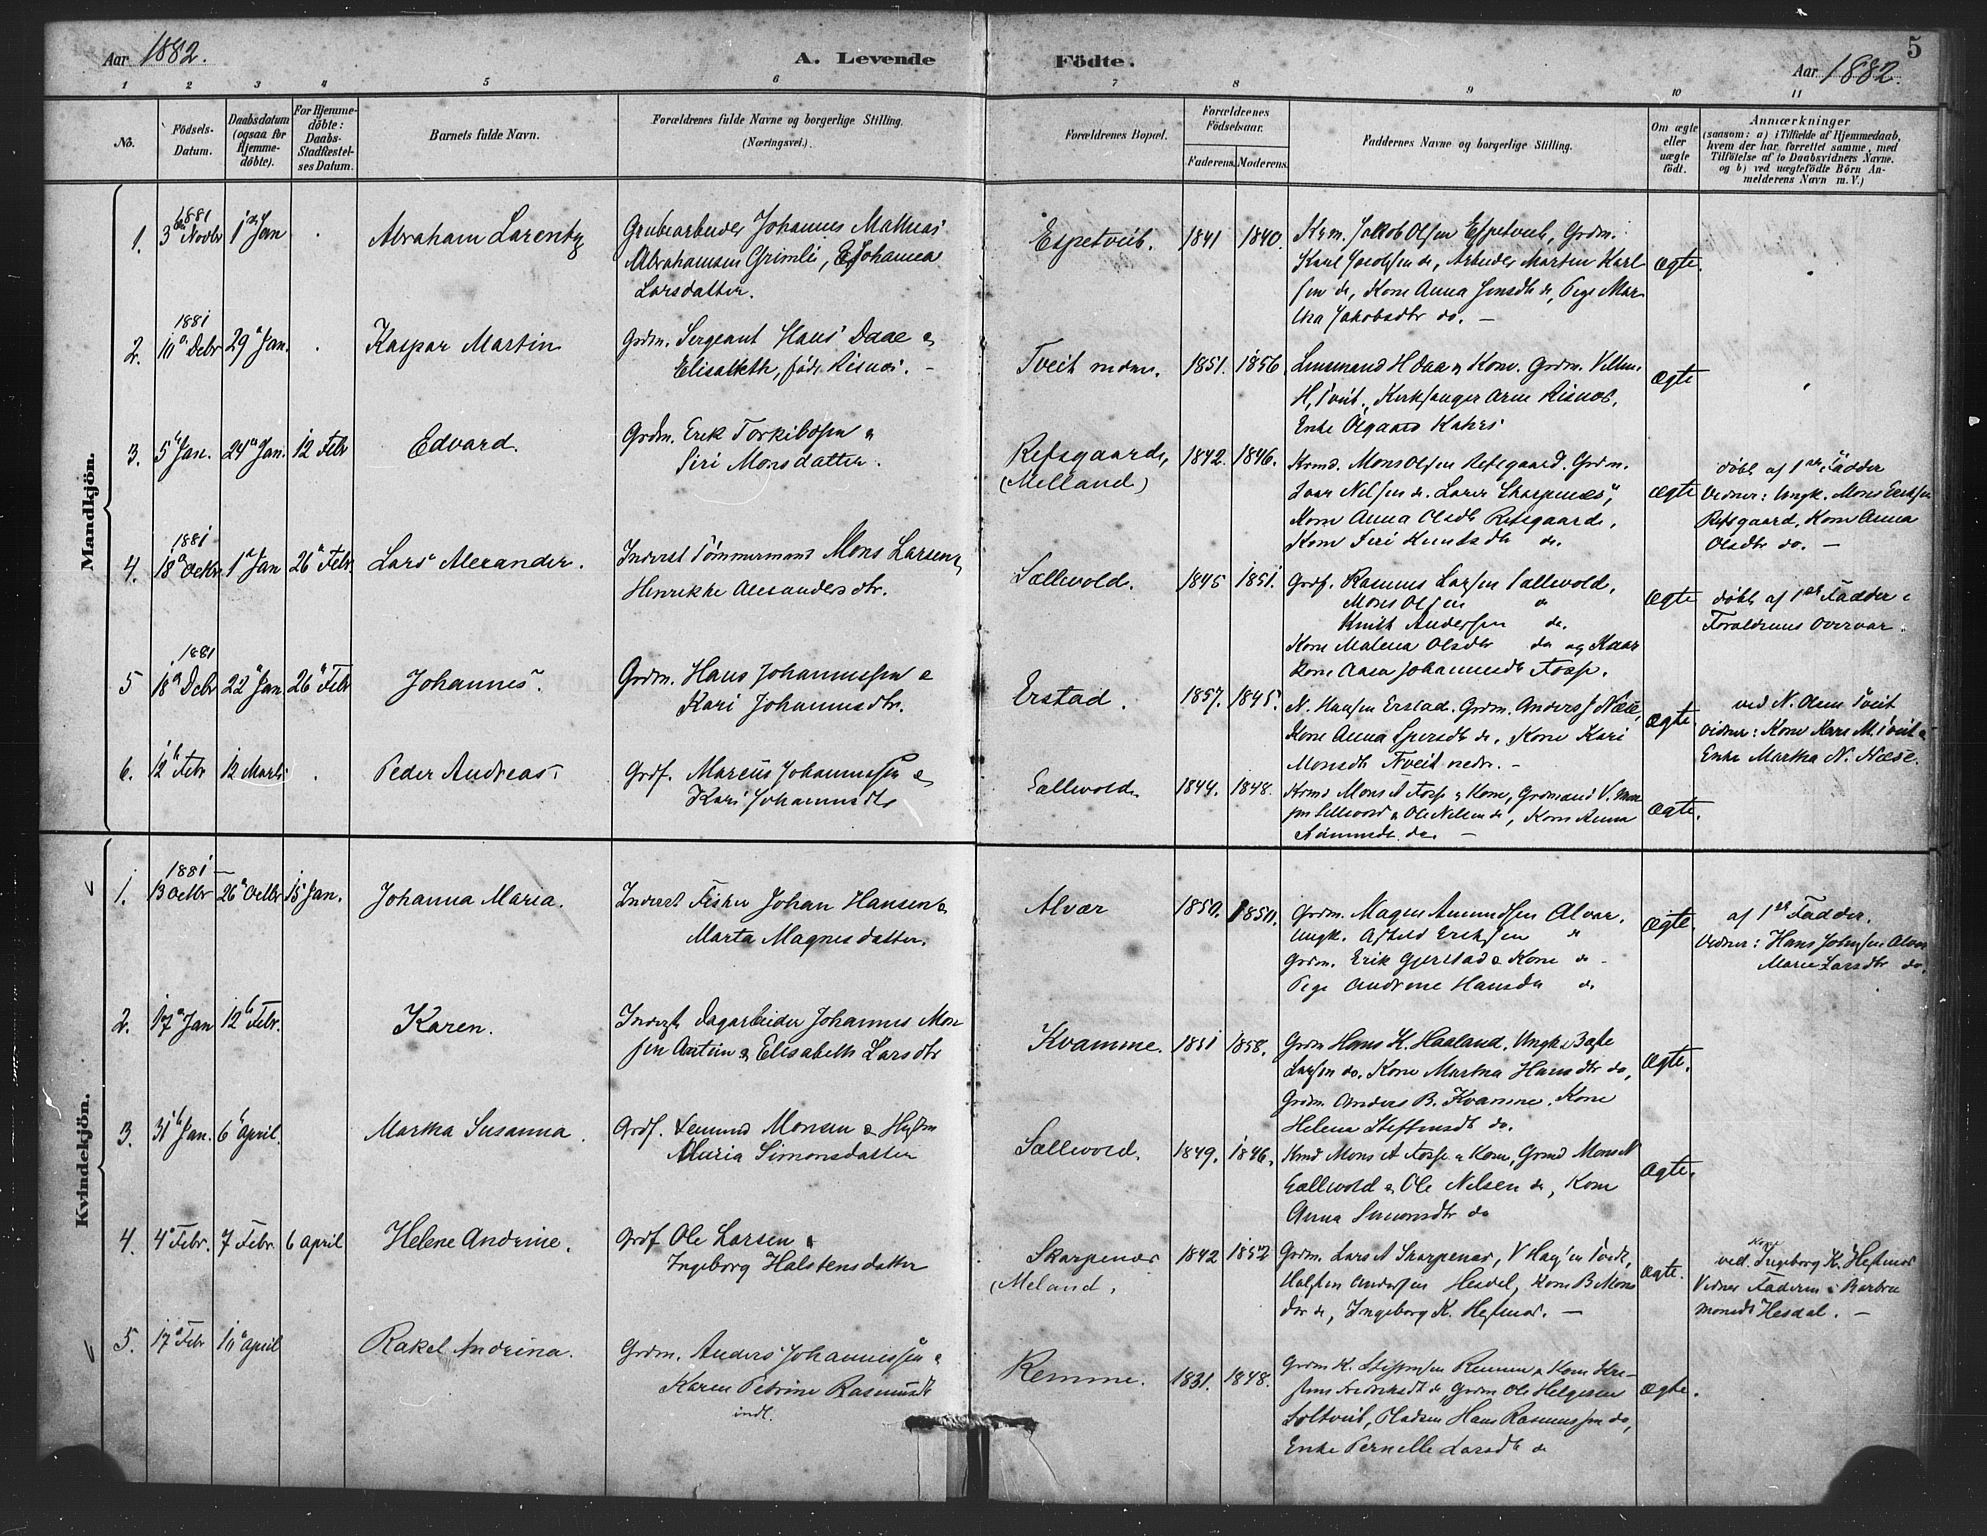 Aar 1882.
A. Levende
Födte.
Aar 1882.
5
1 2 3 4 5 6 7 8 9 10 11
No.
Födsels-
Datum.
Daabsdatum
(ogsaa for
Hjemme-
döbte).
For Hjemme-
döbte:
Daabs-
Stadfæstel-
ses Datum.
Barnets fulde Navn.
Forældrenes fulde Navne og borgerlige Stilling.
(Næringsvei.)
Forældrenes Bopæl.
Forældrenes
Födselsaar.
Faderens. Moderens.
Faddernes Navne og borgerlige Stilling.
Om ægte
eller
uægte
födt.
Anmærkninger
(saasom: a) i Tilfælde af Hjemmedaab,
hvem der har forrettet samme, med
Tilföielse af to Daabsvidners Navne.
og b) ved uægtefödte Börn An-
melderens Navn m. V.)
Mandkjön.
1881
1. 3 Novbr 1 Jan Abraham Larentz
Grubearbeider Johannes Mathias
Abrahamsen Grimlie, Johanna
Larsdatter.
Espetveit. 1841 1840.
Krm. Jakob Olsen Espetveit, Grdm.
Karl Jacobsen do, Arbeider Martin Karl
sen do, Kone Anna Jensdtr do, Pige Mar
tha Jakobsdtr do. —
Ægte.
1881
2. 10 Debr 29 Jan. Kaspar Martin
Grdm. Sergeant Hans Daae &
Elisabeth, föd Risnes. —
Tveit nedre. 1851. 1856
Lensmand H Daae & Kone. Grdm. Villum
H. Tveit, Kirksanger Arne Risnes,
Enke Olgaard Kahrs
Ægte
3. 5 Jan. 24 Jan. 12 Febr Edvard.
Grdm. Erik Torkildsen &
Siri Monsdatter.
Refsgaard,
(Melland)
1842. 1846.
Krmd. Mons Olsen Refsgaard. Grdm.
Ivar Nilsen do. Lærer Skarpenæs,
Kone Anna Olsdtr Refsgaard,
Kone Siri Knutsdtr do.
Ægte
döbt af 1ste Fadder
Vidner: Ungk. Mons Eriksen
Refsgaard, Kone Anna
Olsdtr do. —
1881
4. 18 Octbr 1 Jan 26 Febr. Lars Alexander.
Inderst Tömmermand Mons Larsen &
Henrikke Alexandersdtr.
Sællevold. 1845 1851.
Grdf. Rasmus Larsen Sællevold,
Mons Olsen do
Knut Andersen do.
Kone Malena Olsdtr do og
Kone Johannesdtr Fosse.
Ægte
döbt af 1ste Fadder i
Forældrenes Overvær.
1881
5 18 Debr 22 Jan. 26 Febr Johannes.
Grdm. Hans Johannessen &
Kari Johannesdtr.
Erstad. 1857. 1845.
N. Hansen Erstad. Grdm. Anders J Næse,
Kone Anna do, Kone Kari
Monsdtr Tveit nedre. —
Ægte.
ved N. Olsen Tveit
Vidner: Kone Kari M. Tveit &
Enke Martha N. Næse.
6. 12 Febr 12 Marts Peder Andreas.
Grdf. Marcus Johannessen &
Kari Johannesdtr
Sallevold. 1844. 1848.
Krmd Mons A Fosse & Kone, Grdmand
Sellevold & Ole Nilsen do, Kone Anna
do. —
Ægte.
Kvindekjön.
1881
1. 13 Octbr 26 Octbr 15 Jan. Johanna Maria.
Inderst Fisker Johan Hansen &
Marta Magnesdatter.
Alvær 1850. 1850.
Grdm. Magne Amundsen Alvær.
Ungk. Eriksen do
Grdm. Erik Gjerstad & Kone do.
Pige Andrine Hansdtr do
Ægte.
af 1ste Fadder.
Vidner: Hans Johnsen Alvær
Marie Larsdtr do.
2. 17 Jan 12 Febr. Karen.
Inderst Dagarbeider Johannes Mon
sen & Elisabeth Larsdtr
Kvamme. 1851 1858.
Grdm Hans K. Haaland. Ungk
Larsen do. Kone Martha Hansdtr do,
Grdm. Anders B. Kvamme, Kone
Helena Steffensdtr do.
Ægte.
3. 31 Jan. 6 April. Martha Susanna.
Grdf. Monsen &
Maria Simonsdatter
Sællevold. 1849. 1846.
Krmd Mons A Fosse & Kone, Grmd Mons N
Sallevold & Ole Nilsen do, Kone
Anna Simonsdtr do
Ægte.
4. 4 Febr. 7 Febr. 6 April Helene Andrine.
Grdf Ole Larsen &
Ingeborg Halstensdatter
Skarpenæs
(Meland.
1842 1852
Grdm. Lars A Skarpenæs, Tvedt,
Halsten Andersen Hesdal, Kone B Mons
dtr do, Ingeborg K. Heftnæs. —
Ægte.
ved Kone Ingeborg K. Heftnæs
Vidner Faderen & Barbra
Monsdtr Hesdal. —
5. 17 Febr 10 April Rakel Andrina.
Grdm. Anders Johannessen &
Karen Petrine Rasmusdtr
indl.
Remme. 1831. 1848.
Grdm K. Steffensen Remme & Kone
do, Grdm Ole Helgesen
Soltveit, Hans Rasmussen do,
Enke Pernelle Larsdtr do
Ægte.